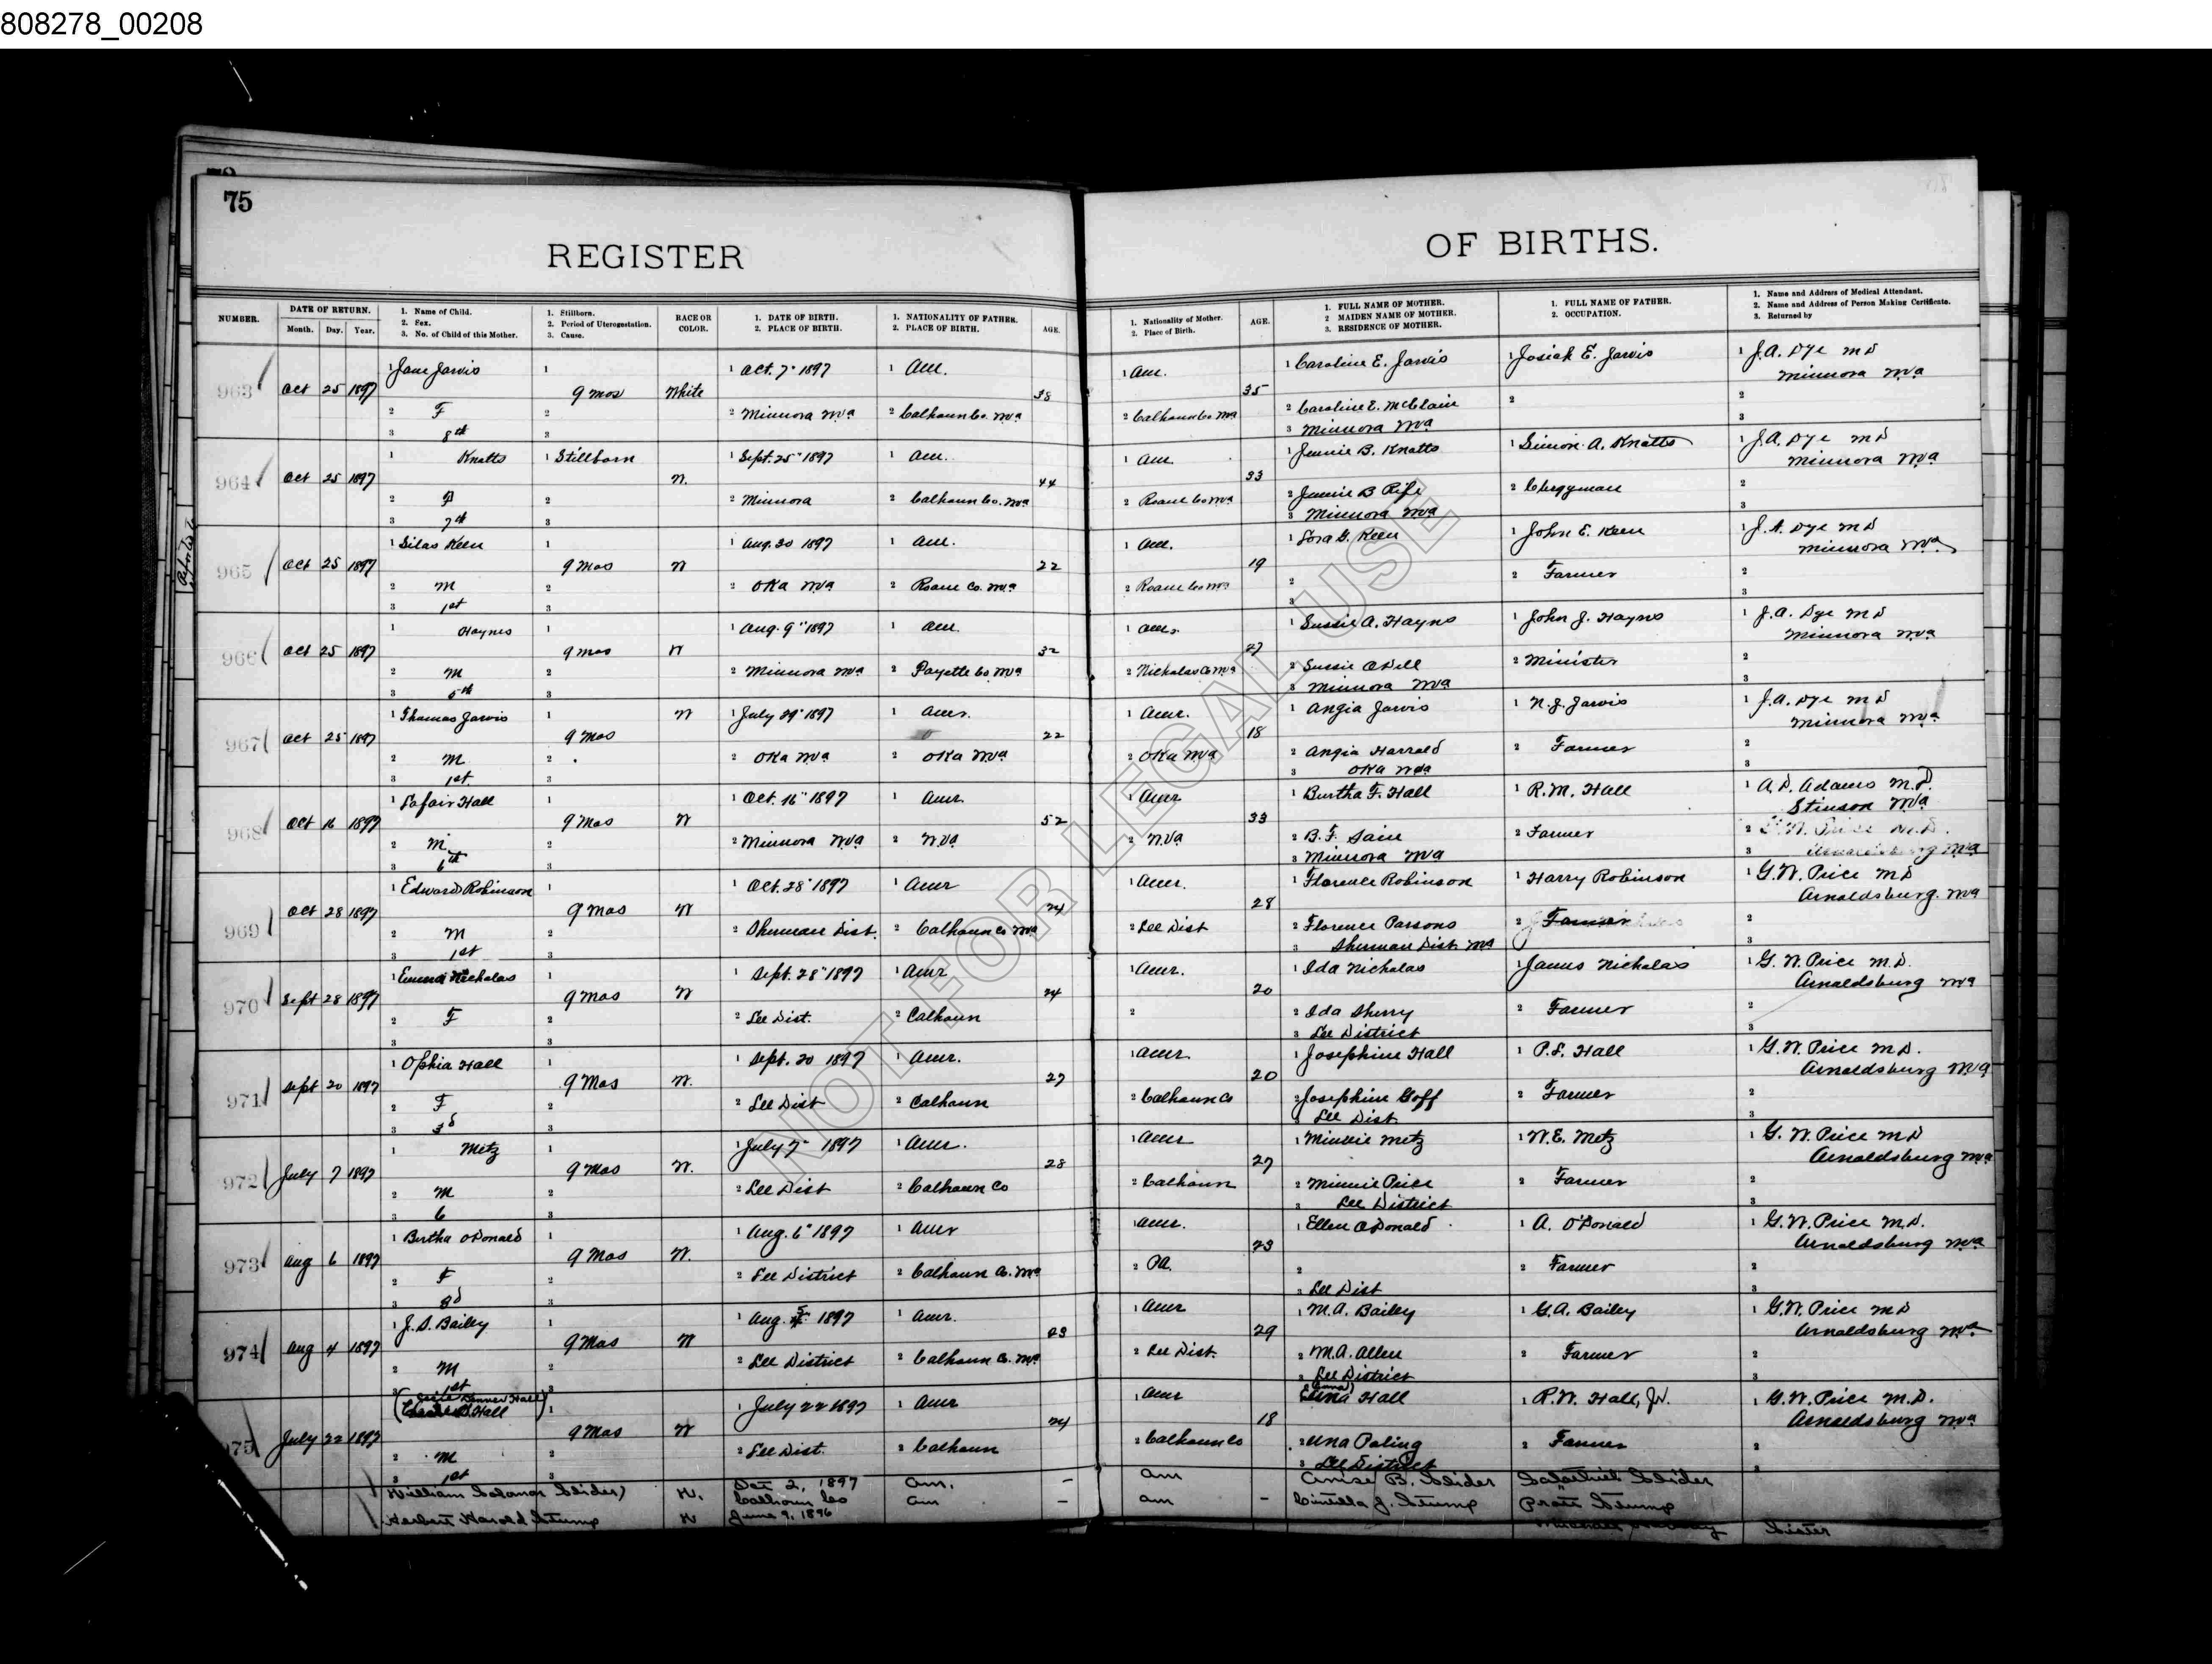 808278_00208
75
REGISTER OF BIRTHS.
NUMBER. DATE OF RETURN. Month. Day. Year. 1. Name of Child. 2. Sex. 3. No. of Child of this Mother. 1. Stillborn. 2. Period of Uterogestation. 3. Cause. RACE OR COLOR. 1. DATE OF BIRTH. 2. PLACE OF BIRTH. 1. NATIONALITY OF FATHER. 2. PLACE OF BIRTH. AGE. 1. Nationality of Mother. 2. Place of Birth. AGE. 1. FULL NAME OF MOTHER. 2 MAIDEN NAME OF MOTHER. 3. RESIDENCE OF MOTHER. 1. FULL NAME OF FATHER. 2. OCCUPATION. 1. Name and Address of Medical Attendant. 2. Name and Address of Person Making Certificate. 3. Returned by
1 Jane Jarvis 1 1 Oct. 7" 1897 1 Am. 1 Am. 1 Caroline E. Jarvis 1 Josiah E. Jarvis 1 J.A. Dye MD
963 Oct 25 1897 9 mos White 38 35 Minnora Wva
2 F 2 2 Minnora Wva 2 Calhoun Co. Wva 2 Calhoun Co Wva 2 Caroline E. McClain 2 2
3 8th 3 3 Minnora Wva 3
1 Knotts 1 Stillborn 1 Sept. 25" 1897 1 Am. 1 Am 1 Jennie B. Knotts 1 Simon A. Knotts 1 J.A. Dye MD
964 Oct 25 1897 W. 44 33 Minnora Wva
2 2 2 Minnora 2 Calhoun Co. Wva 2 Roane Co Wva 2 Jennie B Rife 2 Clergyman 2
3 7th 3 3 Minnora Wva 3
1 Silas Keen 1 1 Aug. 30 1897 1 Am. 1 Am. 1 Lora G. Keen 1 John E. Keen 1 J.A. Dye MD
965 Oct 25 1897 9 mos W 22 19 Minnora Wva
2 M 2 2 Oka Wva 2 Roane Co. Wva 2 Roane Co Wva 2 2 Farmer 2
3 1st 3 3 3
1 Haynes 1 1 Aug. 9" 1897 1 Am. 1 Amr. 1 Sussie A. Hayns 1 John J. Hayns 1 J.A. Dye MD
966 Oct 25 1897 9 mos W 32 27 Minnora Wva
2 M 2 2 Minnora Wva 2 Fayette Co. Wva 2 Nicholas Co Wva 2 Sussie Odell 2 Minister 2
3 5th 3 3 Minnora Wva 3
1 Thomas Jarvis 1 W 1 July 29" 1897 1 Amr. 1 Amr. 1 Angia Jarvis 1 N.J. Jarvis 1 J.A. Dye MD
967 Oct 25 1897 9 mos 22 18 Minnora Wva
2 M 2 2 Oka Wva 2 Oka Wva 2 Oka Wva 2 Angia Harrald 2 Farmer 2
3 1st 3 3 Oka Wva 3
1 Lafair Hall 1 1 Oct. 16" 1897 1 Amr. 1 Amr 1 Burtha F. Hall 1 R.M. Hall 1 A.D. Adams M.D.
968 Oct 16 1897 9 Mos W 52 33 Stinson Wva
2 M 2 2 Minnora Wva 2 W.Va 2 W.Va 2 B.F. Sain 2 Farmer 2 G.W. Price M.D.
3 6th 3 3 Minnora Wva 3 Arnoldsburg Wva
1 Edward Robinson 1 1 Oct. 28" 1897 1 Amr 1 Amr. 1 Florence Robinson 1 Harry Robinson 1 G.W. Price MD
969 Oct 28 1897 9 Mos W 24 28 Arnoldsburg. Wva
2 M 2 2 Sherman Dist. 2 Calhoun Co Wva 2 Lee Dist 2 Florence Parsons 2 Farmer 2
3 1st 3 3 Sherman Dist Wva 3
1 Emma Nicholas 1 1 Sept. 28" 1897 1 Amr 1 Amr. 1 Ida Nicholas 1 James Nicholas 1 G.W. Price M.D.
970 Sept 28 1897 9 Mos W 24 20 Arnoldsburg Wva
2 F 2 2 Lee Dist. 2 Calhoun 2 2 Ida Sherry 2 Farmer 2
3 3 3 Lee District 3
1 Ophia Hall 1 1 Sept. 20 1897 1 Amr. 1 Amr. 1 Josephine Hall 1 P.L. Hall 1 G.W. Price M.D.
971 Sept 20 1897 9 Mos W. 27 20 Arnoldsburg Wva
2 F 2 2 Lee Dist 2 Calhoun 2 Calhoun Co 2 Josephine Goff 2 Farmer 2
3 3d 3 3 Lee Dist 3
1 Metz 1 1 July 7" 1897 1 Amr. 1 Amr 1 Minnie Metz 1 W.E. Metz 1 G.W. Price MD
972 July 7 1897 9 Mos W. 28 27 Arnoldsburg Wva
2 M 2 2 Lee Dist 2 Calhoun Co 2 Calhoun 2 Minnie Price 2 Farmer 2
3 6 3 3 Lee District 3
1 Bertha ODonald 1 1 Aug. 6" 1897 1 Amr 1 Amr. 1 Ellen ODonald 1 A. O'Donald 1 G.W. Price M.D.
973 Aug 6 1897 9 Mos W. 23 Arnoldsburg Wva
2 F 2 2 Lee District 2 Calhoun Co. Wva 2 PA. 2 2 Farmer 2
3 3 3 Lee Dist 3
1 J.S. Bailey 1 1 Aug. 5 1897 1 Amr. 1 Amr 1 M.A. Bailey 1 G.A. Bailey 1 G.W. Price MD
974 Aug 4 1897 9 Mos W 23 29 Arnoldsburg Wva
2 M 2 2 Lee District 2 Calhoun Co. Wva 2 Lee Dist. 2 M.A. Allen 2 Farmer 2
3 1st 3 3 Lee District 3
Hall 1 1 July 22 1897 1 Amr 1 Amr Una Hall 1 R.W. Hall, Jr. 1 G.W. Price M.D.
975 July 22 1897 9 Mos W 24 18 Arnoldsburg Wva
2 M 2 2 Lee Dist. 2 Calhoun 2 Calhoun Co 2 Una Poling 2 Farmer 2
3 1st 3 3 Lee District 3
William Solomon Slider W. Oct 2, 1897 Am. - Am B. Slider Slider
Calhoun Co
Herbert Harold Stump W June 9, 1896 Am - Am - J. Stump Stump
Sister
NOT FOR LEGAL USE